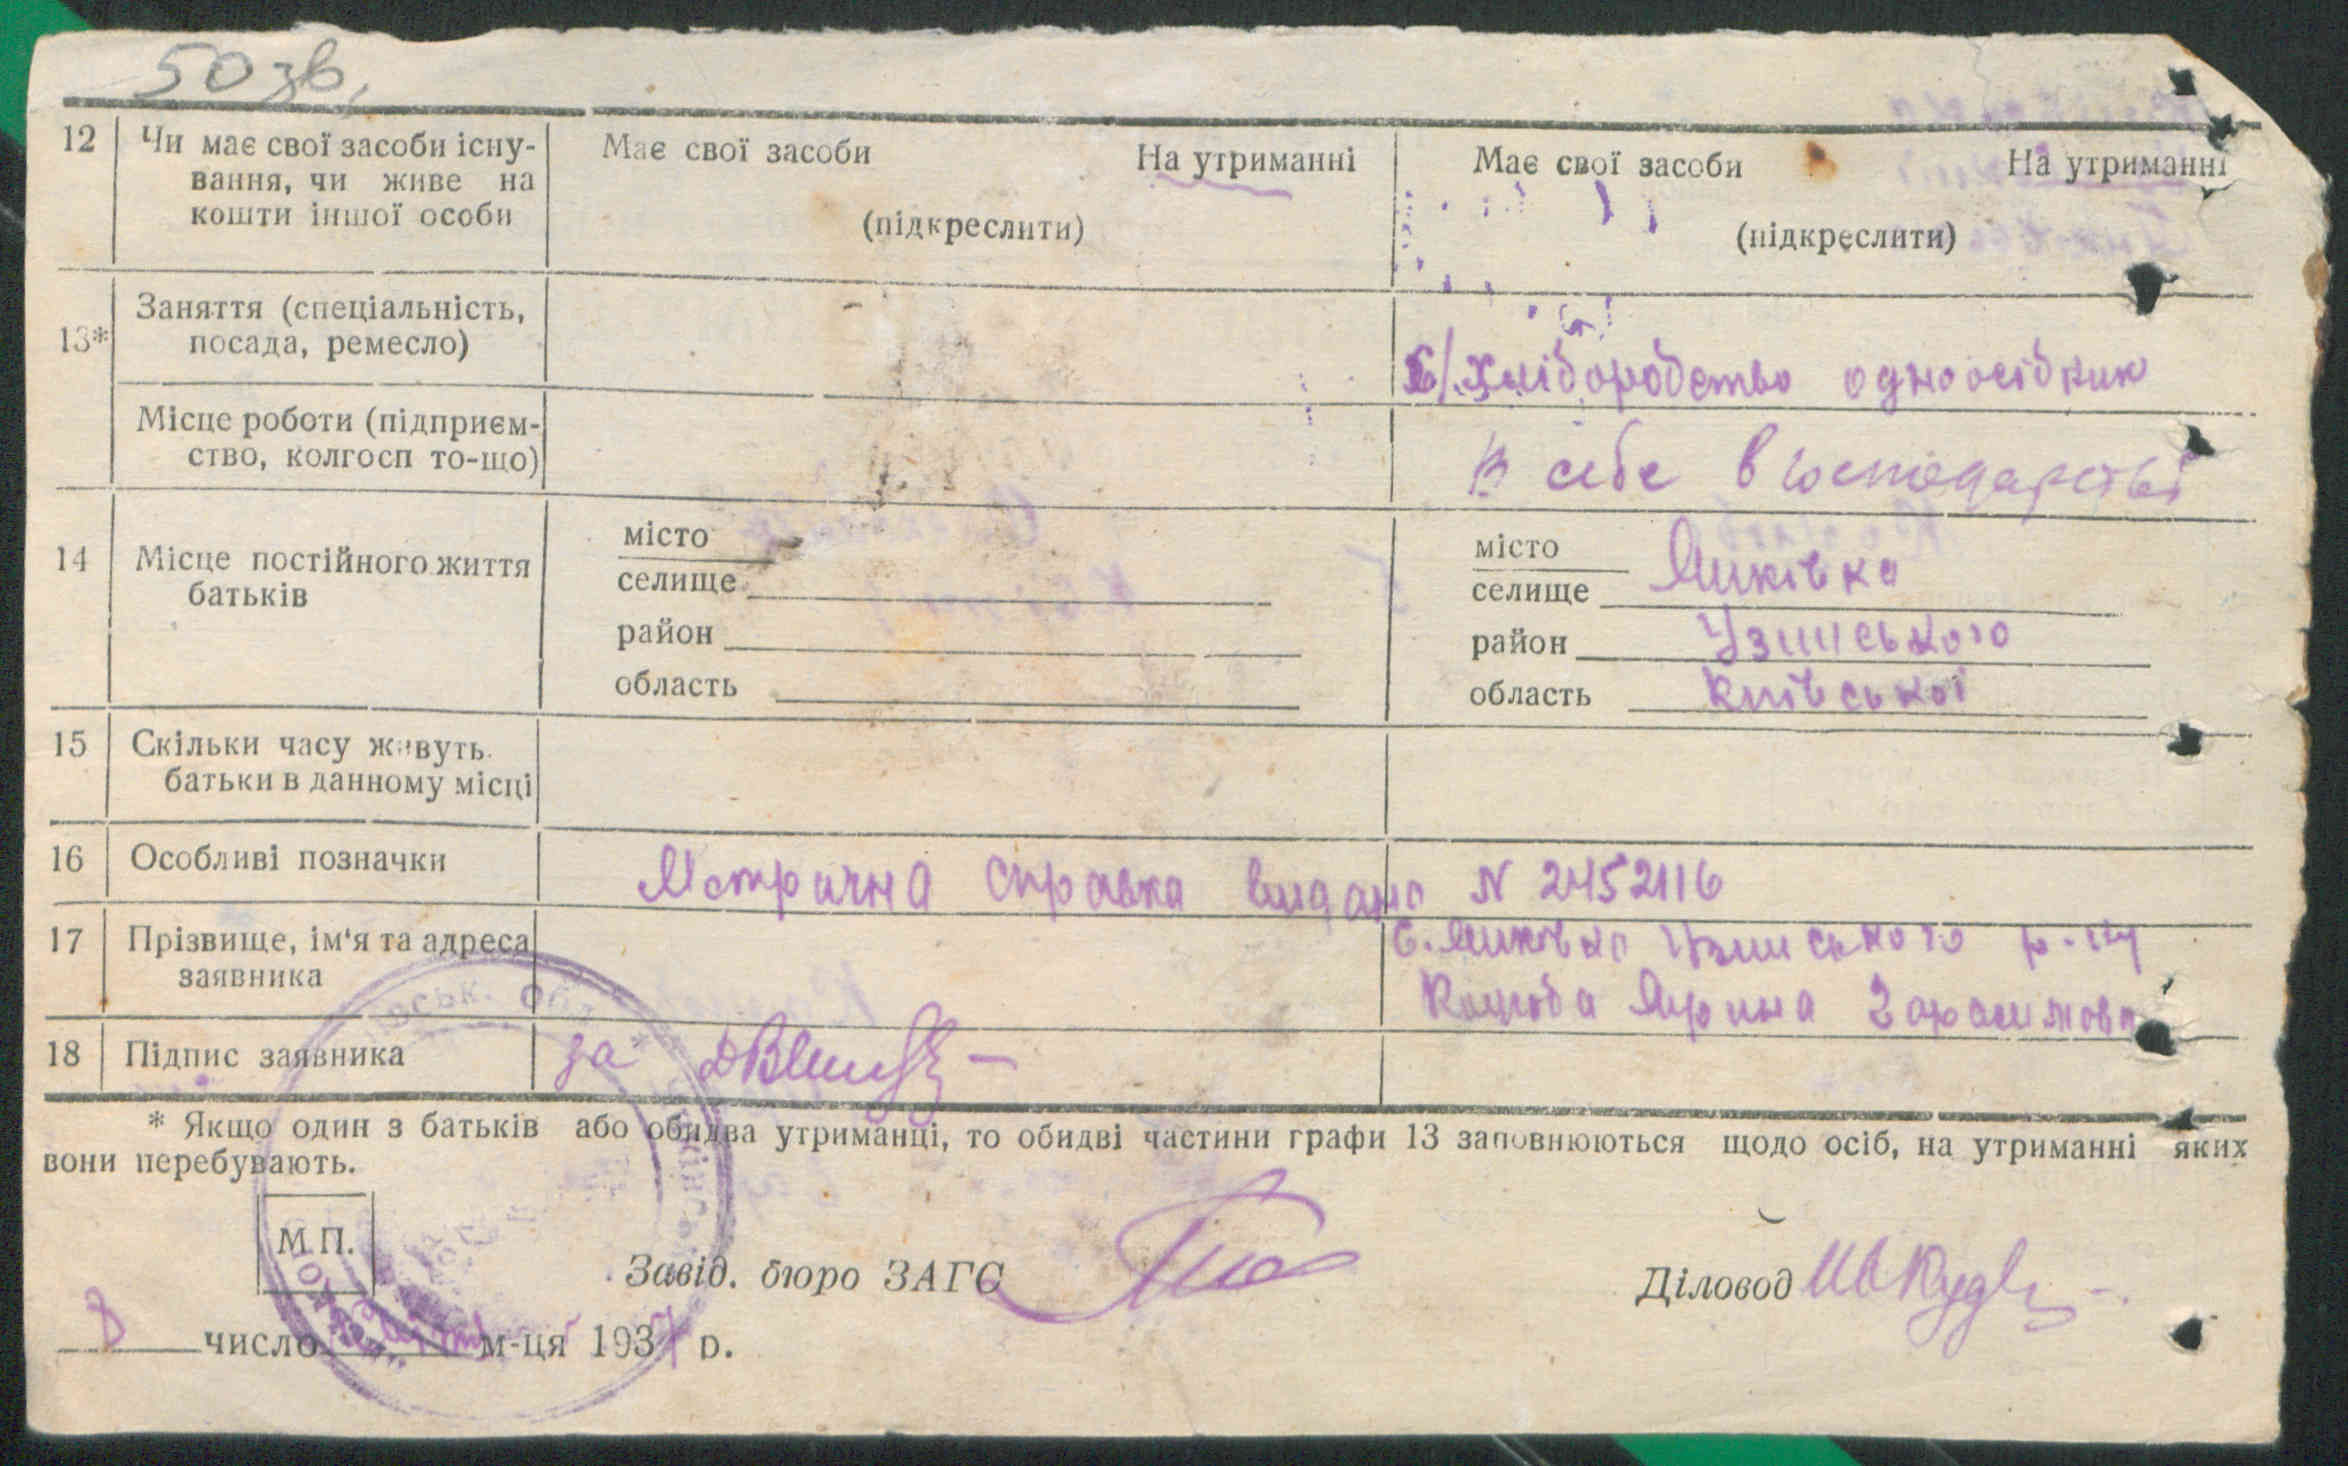 50 зв.
12 Чи має свої засоби існу- Має свої засоби На утриманні Має свої засоби На утриманні
вання, чи живе на
кошти іншої особи (підкреслити) (підкреслити)
13* Заняття (спеціальність,
посада, ремесло) хліборобство одноосібник
Місце роботи (підприєм-
ство, колгосп то-що) в себе в господарстві
14 Місце постійного життя
батьків
місто
селище
район
область
місто
селище Яцківка
район Узинського
область Київської
15 Скільки часу живуть
батьки в данному місці
16 Особливі позначки Метрична справка видана N 2452116
17 Прізвище, ім'я та адреса
заявника
с. Яцківка Узинського р-ну
Ярина
18 Підпис заявника за
* Якщо один з батьків або обидва утриманці, то обидві частини графи 13 заповнюються щодо осіб, на утриманні яких
вони перебувають.
М.П.
Завід. бюро ЗАГС Діловод
8 число м-ця 1937 р.